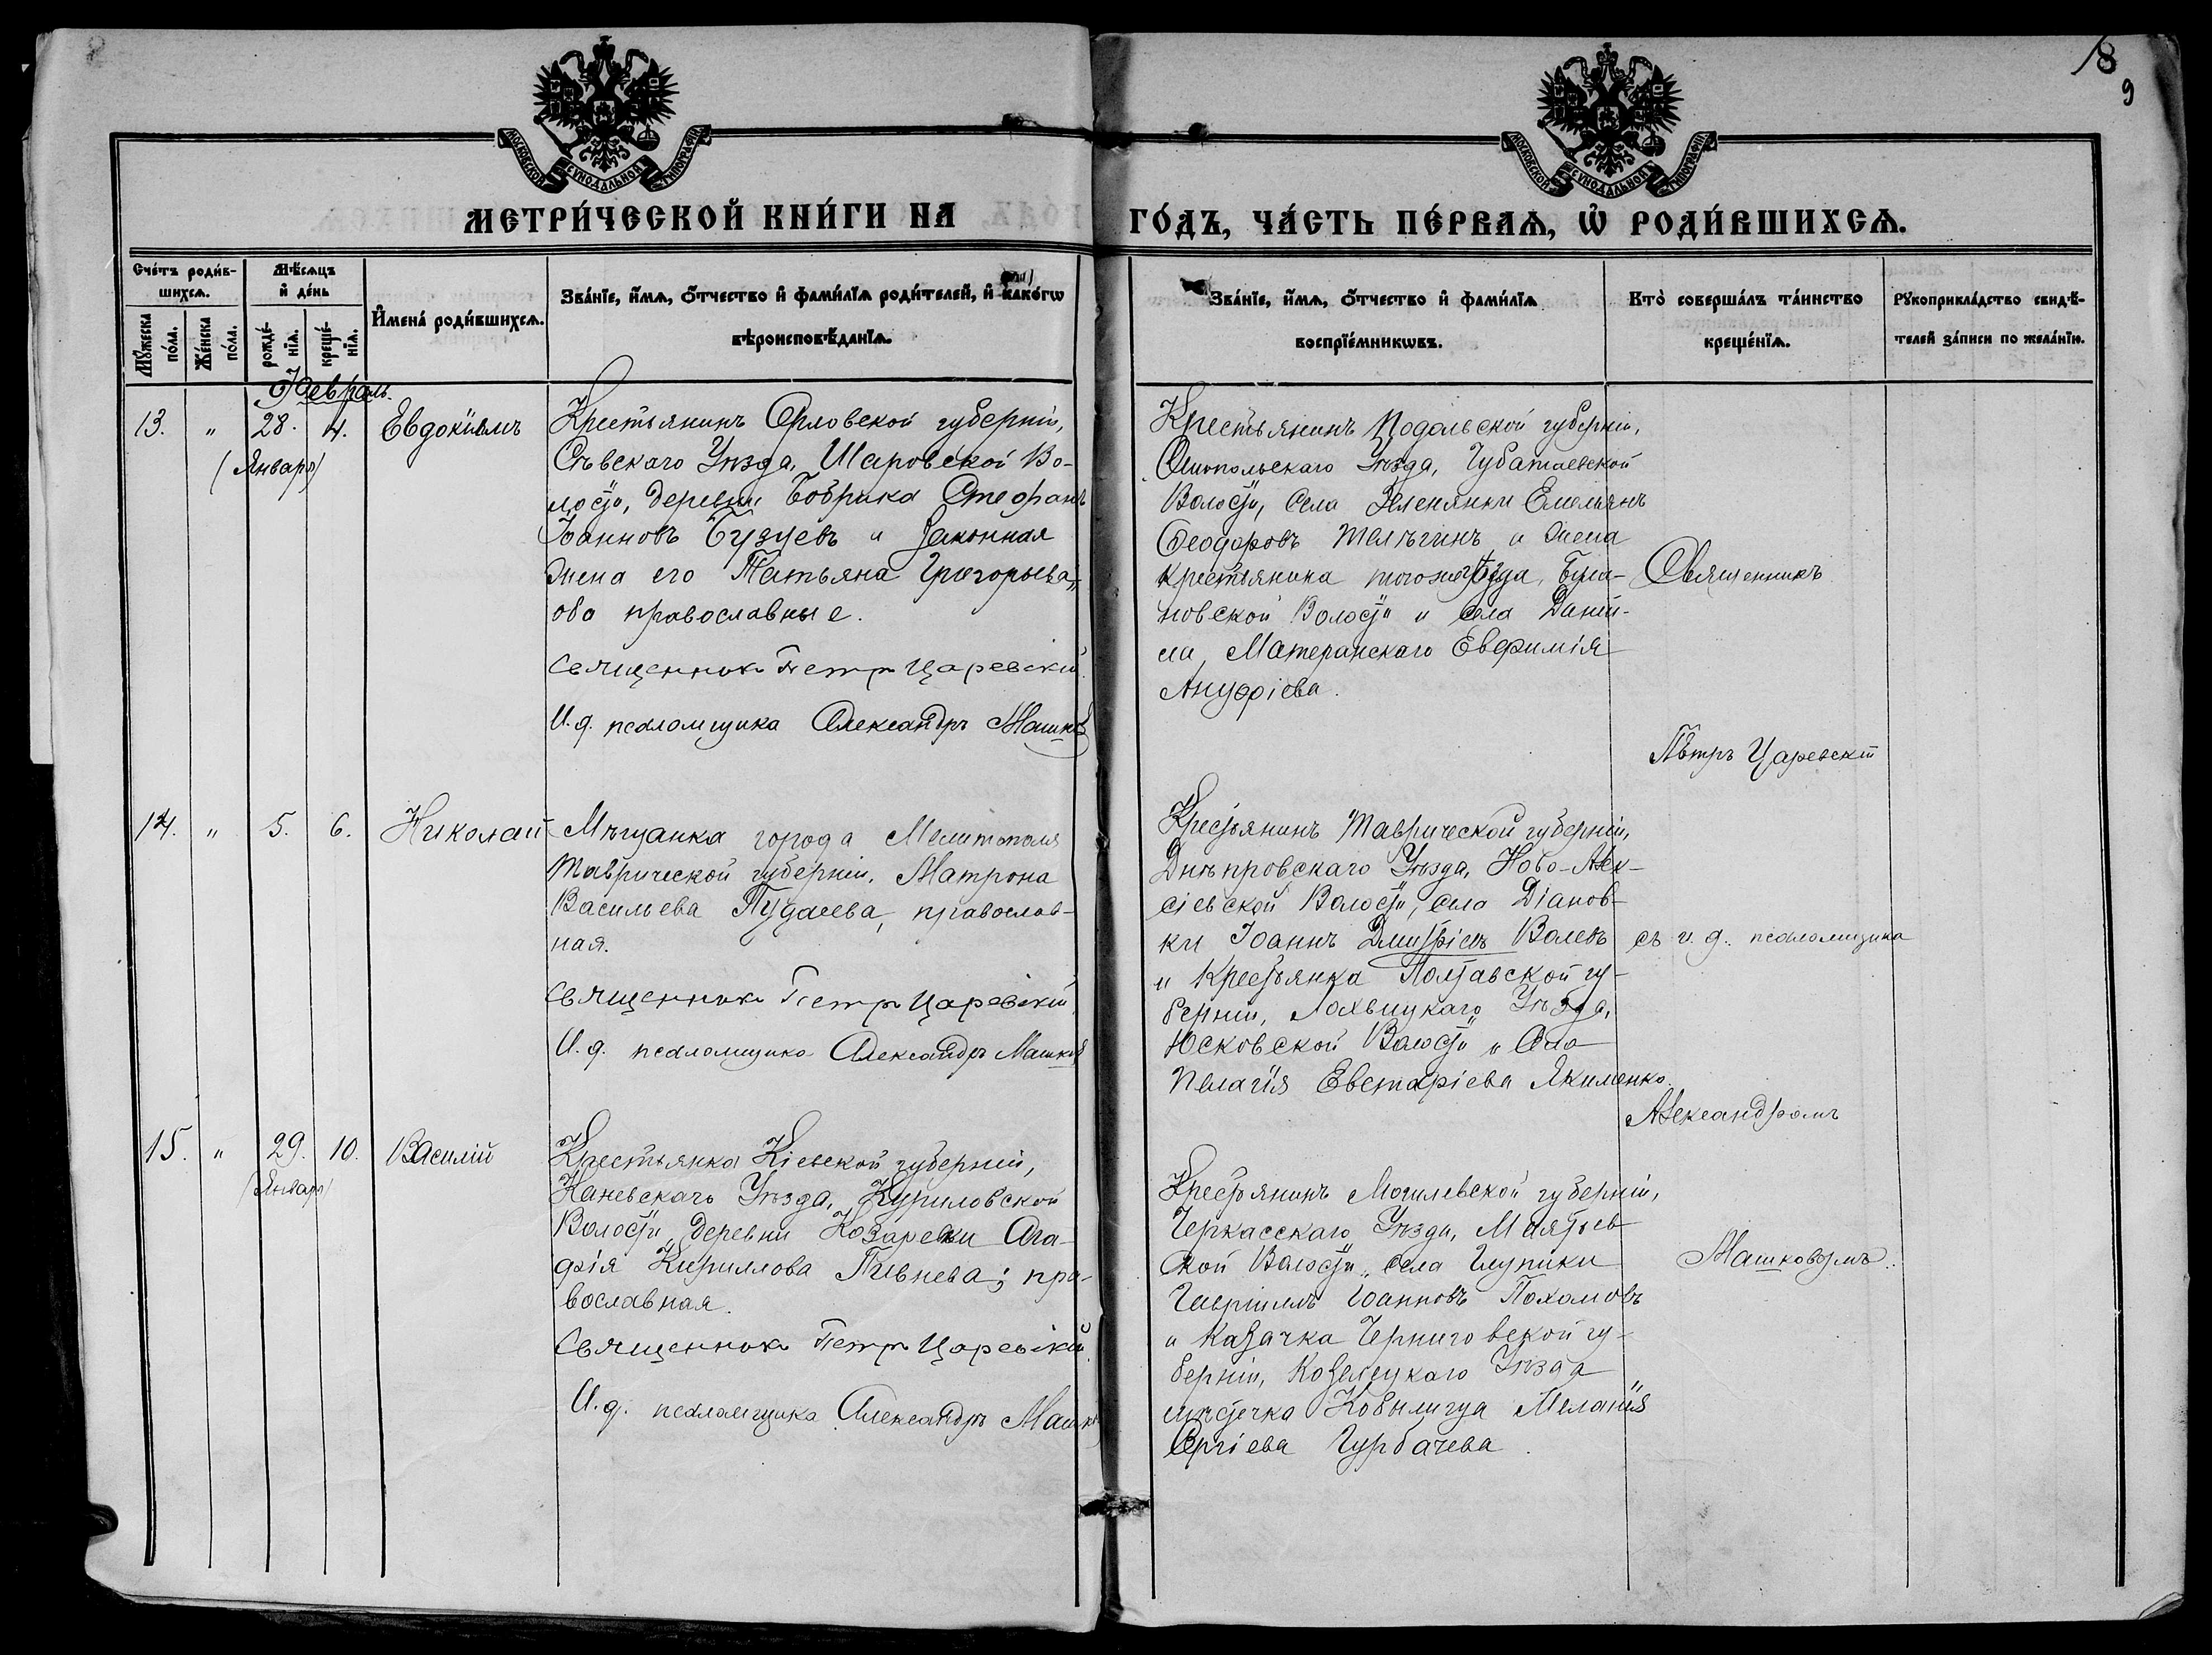 18
9
МОСКОВСКОЙ СѴНОДАЛЬНОЙ ТИПОГРАФІИ
МОСКОВСКОЙ СѴНОДАЛЬНОЙ ТИПОГРАФІИ
МЕТРИ́ЧЕСКОЙ КНИ́ГИ НА ГО́ДЪ, ЧА́СТЬ ПЕ́РВАѦ, Ѡ РОДИ́ВШИХСѦ.
Сче́тъ роди́в-
шихсѧ.
Мѣ́сѧцъ
и҆ де́нь
Мꙋ́жеска по́ла.
Же́нска по́ла.
рожде́-
нїѧ.
креще́-
нїѧ.
И҆мена̀ роди́вшихсѧ.
Зва́нїе, и҆́мѧ, ѻ҆́тчество и҆ фамѝлїѧ роди́телей, и҆ како́гѡ
вѣроисповѣ́данїѧ.
Зва́нїе, и҆́мѧ, ѻ҆́тчество и҆ фамѝлїѧ
воспрїе́мникѡвъ.
Кто̀ соверша́лъ та́инство
креще́нїѧ.
Рꙋкоприкла́дство свидѣ́-
телей за́писи по жела́нїю.
Февраль.
13. " 28. 4. Евдокимъ
(Января)
Крестьянинъ Орловской губерніи,
Сѣвскаго Уѣзда, Шаровской Во-
лости, деревни Бобрика Стефанъ
Іоанновъ Бузуевъ и законная
жена его Татьяна Григорьева,
оба православные.
Священник Петр Царевскій
И. д. псаломщика Александръ Машковъ
Крестьянинъ Подольской губерніи,
Ольгопольскаго Уѣзда, Чубатаевской
Волости, села Зеленянки Емельянъ
Ѳеодоровъ Телѣгинъ и жена
крестьянина того же уѣзда,
новской Волости и села Даніи-
ла Матеранскаго Евфимія
Ануфріева.
Священникъ
Петръ Царевскій
14. " 5. 6. Николай
Мѣщанка города Мелитополя
Таврической губерніи, Матрона
Васильева Пудаева, православ-
ная.
Священник Петр Царевскій
И. д. псаломщика Александръ Машковъ
Крестьянинъ Таврической губерніи,
Днѣпровскаго Уѣзда, Ново-Алек-
сіевской Волости, села Діанов-
ки Іоаннъ Дмитріевъ Валевъ
и крестьянка Полтавской гу-
берніи, Лохвицкаго Уѣзда,
Юсковской Волости и села
Пелагія Евстафіева Якименко.
съ и. д. псаломщика
Александромъ
15. " 29. 10. Василій
(Января)
Крестьянка Кіевской губерніи,
Каневскаго Уѣзда, Куриловской
Волости, деревни Козаревки Ага-
фія Кириллова Пивнева; пра-
вославная.
Священник Петр Царевскій
И. д. псаломщика Александръ Машковъ
Крестьянинъ Могилевской губерніи,
Черкасскаго Уѣзда,
ской Волости, села Глупики
Гавріилъ Іоанновъ Пахомовъ
и казачка Черниговской гу-
берніи, Козелецкаго Уѣзда
мѣстечка Кобылища Меланія
Сергіева Гурбачева.
Машковымъ.